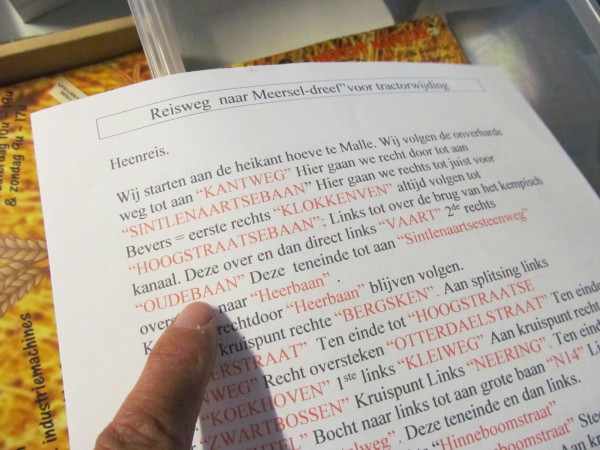 Reisweg naar Meersel-dreef" voor tractorwijding
Heenreis.
Wij starten aan de heikant hoeve te Malle. Wij volgen de onverharde
weg tot aan "KANTWEG" Hier gaan we recht door tot aan
"SINTLENAARTSEBAAN" Hier gaan we rechts tot juist voor
Bevers = eerste rechts "KLOKKENVEN" altijd volgen tot
"HOOGSTRAATSEBAAN"; Links tot over de brug van het kempisch
kanaal. Deze over en dan direct links "VAART" 2de rechts
"OUDEBAAN" Deze teneinde tot aan "Sintlenaartsesteenweg"
naar "Heerbaan" .
rechtdoor "Heerbaan" blijven volgen.
kruispunt rechte "BERGSKEN". Aan splitsing links
Ten einde tot "HOOGSTRAATSE
Recht oversteken "OTTERDAELSTRAAT" Ten einde
"KOEKHOVEN" 1ste links "KLEIWEG" Aan kruispunt recht
"ZWARTBOSSEN" Kruispunt Links "NEERING". Ten einde
Bocht naar links tot aan grote baan "N14"
Deze teneinde en dan links.
"Hinneboomstraat"
zaterdag 10u
& zondag 9u - 17u
industriemachines